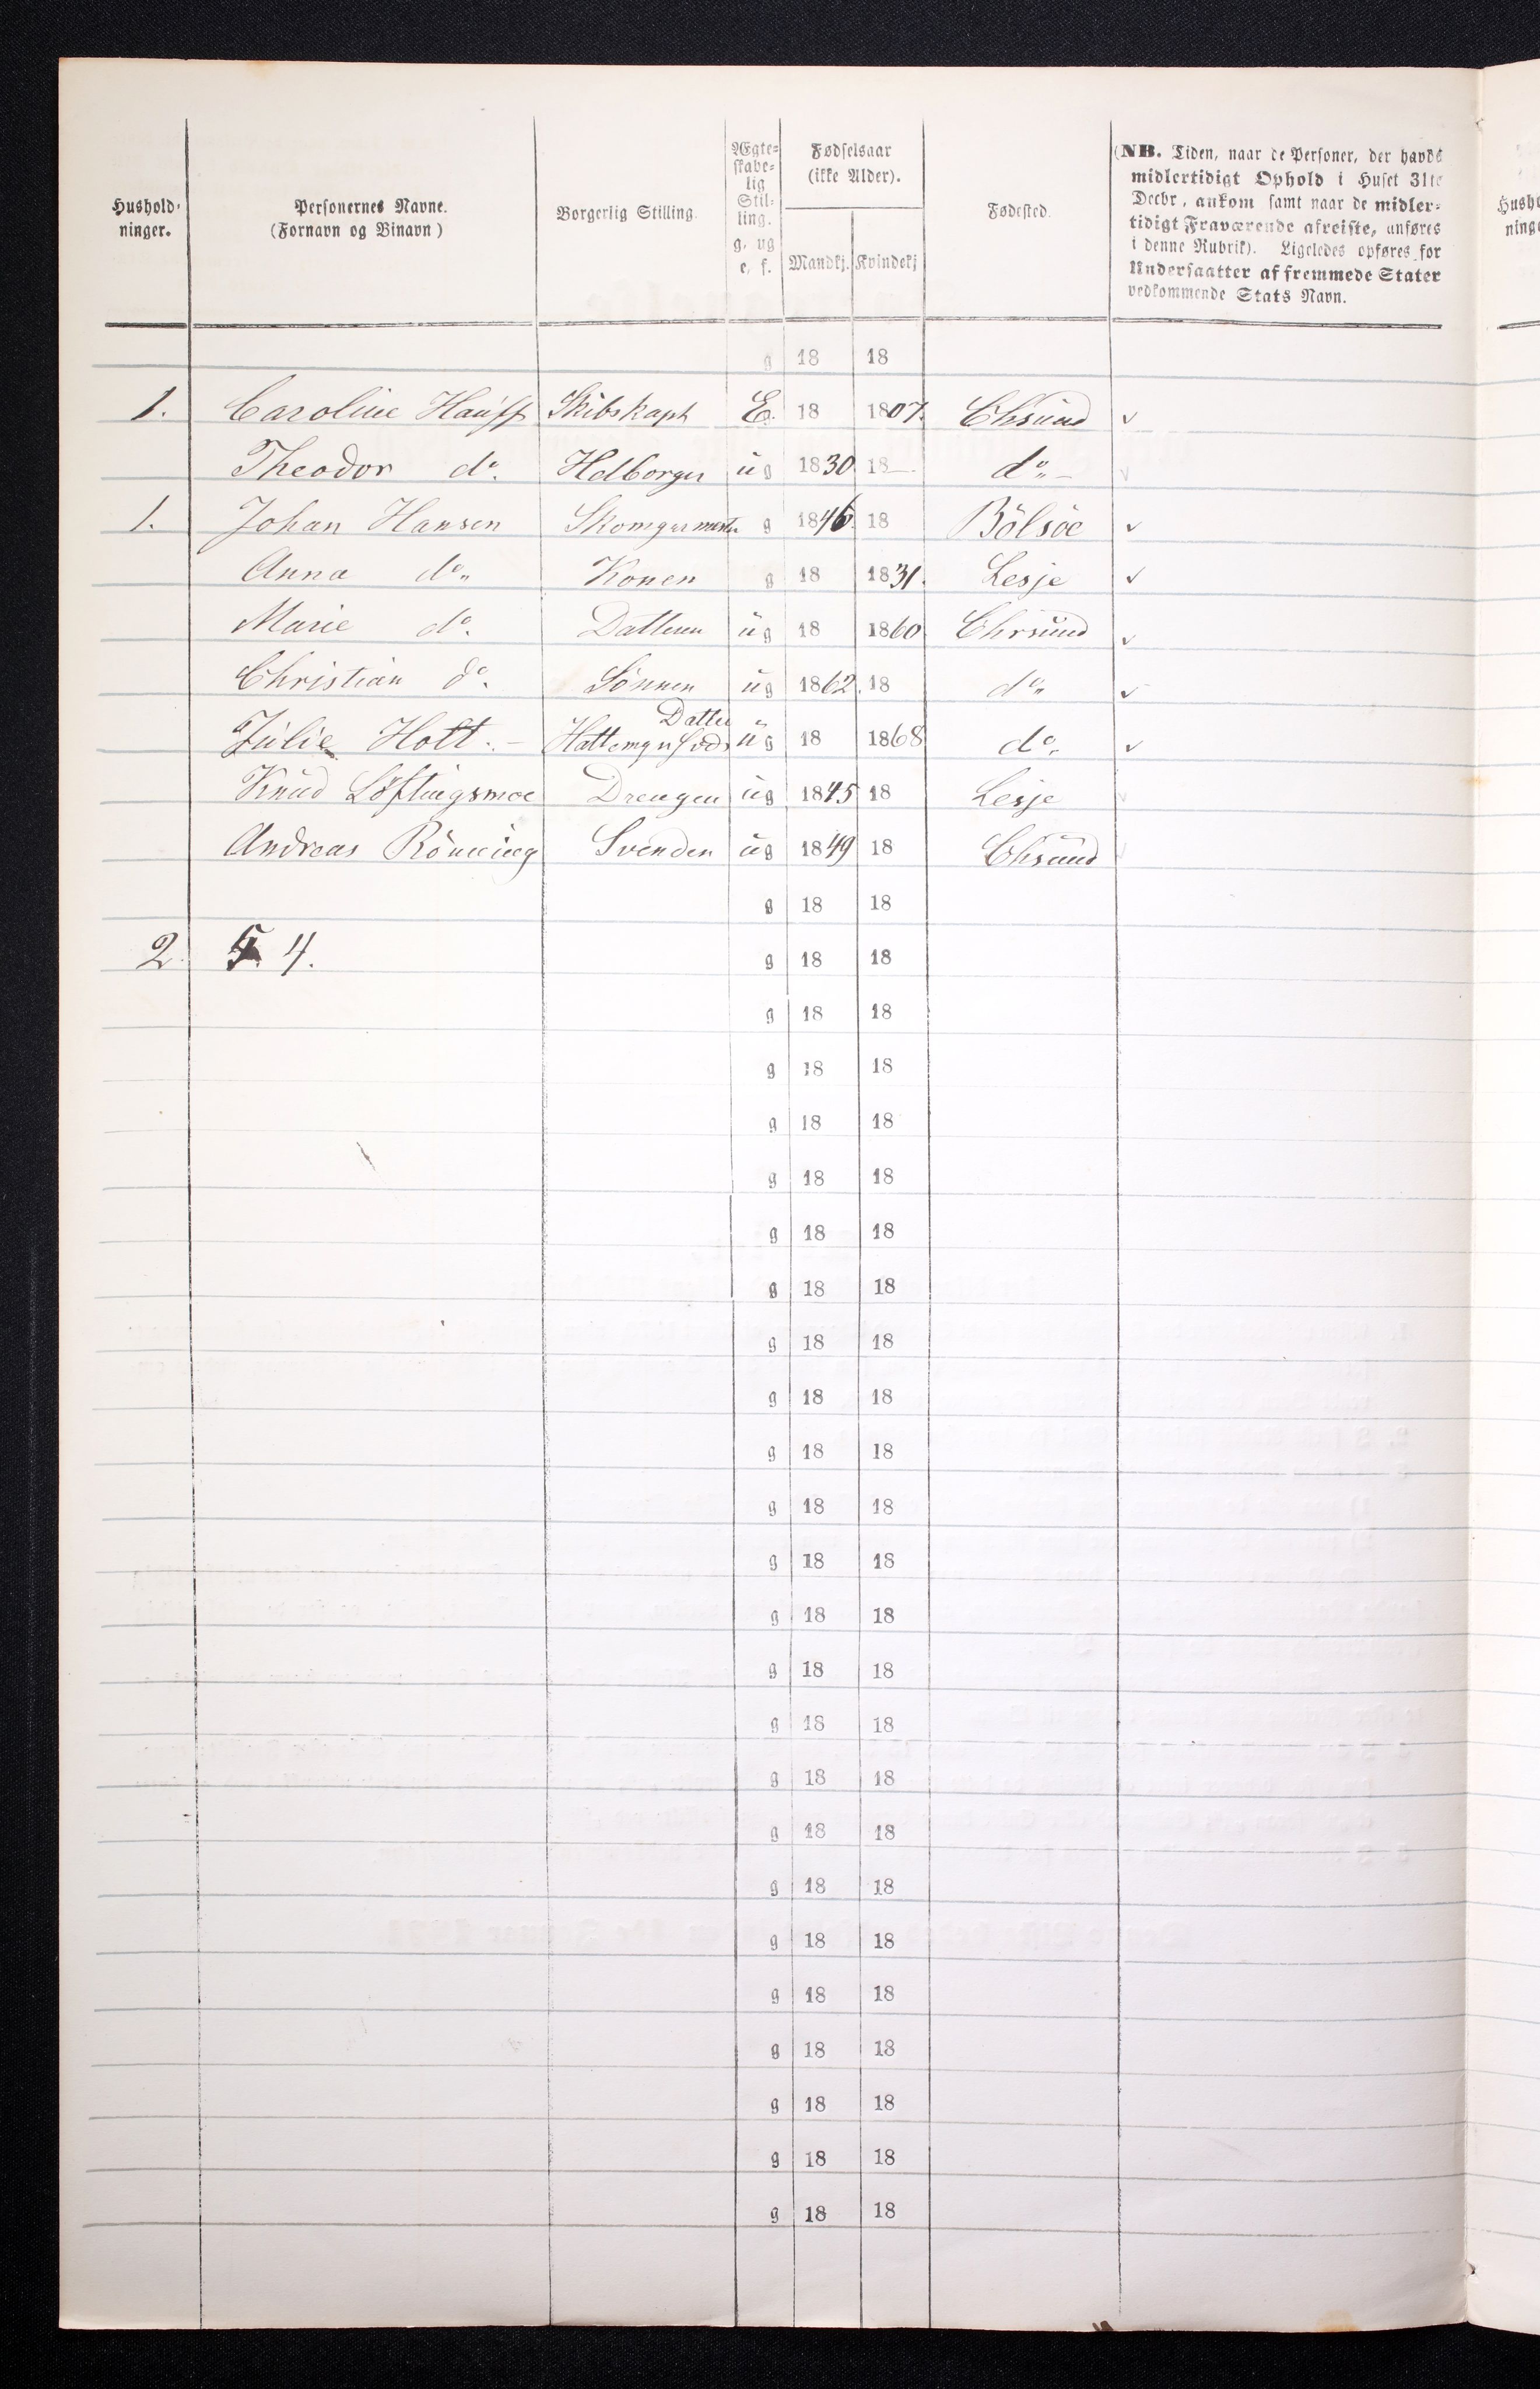 Hushold-
ninger.
Personernes Navne.
(Fornavn og Binavn)
Borgerlig Stilling.
Ægte-
skabe-
lig
Stil-
ling.
g, ug
e, f.
Fødselsaar
(ikke Alder).
Mandkj. Kvindekj
Fødested.
(NB. Tiden, naar de Personer, der havde
midlertidigt Ophold i Huset 31te
Decbr, ankom samt naar de midler-
tidigt Fraværende afreiste, anføres
i denne Rubrik). Ligeledes opføres for
Undersaatter af fremmede Stater
vedkommende Stats Navn.
g 18 18
1. Caroline Hauff Skibskapt E. 18 1807. Chsund
Theodor do. Helborger ug 1830 18 do
1. Johan Hansen Skomgermester g 1846 18 Bölsöe
Anna do Konen g 18 1831. Lesje
Marie do. Datteren ug 18 1860 Chrsund
Christian do. Sönnen ug 1862. 18 do
Datter
Julie Holt. ug 18 1868 do
Knud Löftingsmoe Drengen ug 1845 18 Lesje
Andreas Rönning Svenden ug 1849 18 Chsund
g 18 18
2. 4. g 18 18
g 18 18
g 18 18
g 18 18
g 18 18
g 18 18
g 18 18
g 18 18
g 18 18
g 18 18
g 18 18
g 18 18
g 18 18
g 18 18
g 18 18
g 18 18
g 18 18
g 18 18
g 18 18
g 18 18
g 18 18
g 18 18
g 18 18
g 18 18